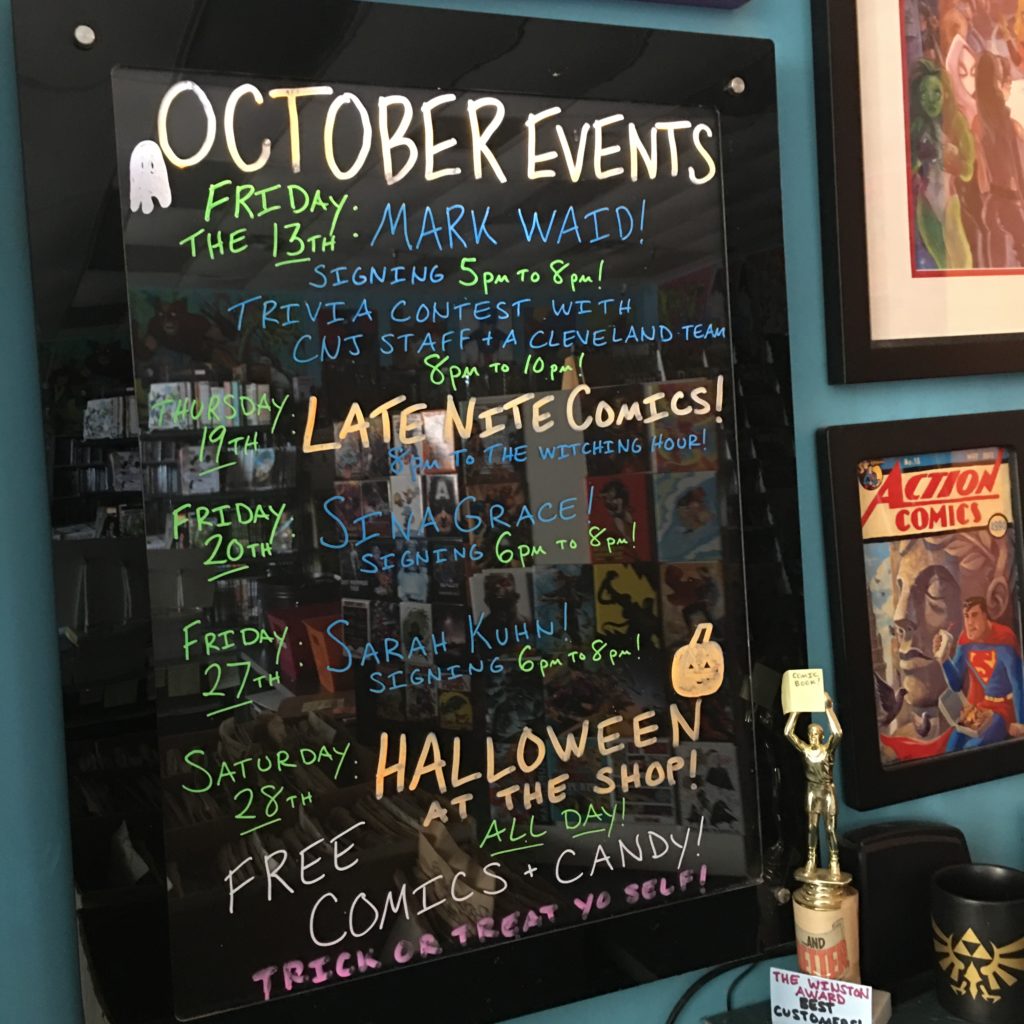 OCTOBER EVENTS
FRIDAY THE 13TH: MARK WAID!
SIGNING 5pm TO 8pm!
TRIVIA CONTEST WITH
CNJ STAFF + A CLEVELAND TEAM
8pm TO 10pm!
THURSDAY 19TH: LATE NITE COMICS!
8pm TO THE WITCHING HOUR!
FRIDAY 20TH: SINA GRACE!
SIGNING 6pm TO 8pm!
FRIDAY 27TH: SARAH KUHN!
SIGNING 6pm TO 8pm!
SATURDAY 28TH: HALLOWEEN
AT THE SHOP!
ALL DAY!
FREE
COMICS + CANDY!
TRICK OR TREAT YO SELF!
ACTION
COMICS
COMIC
BOOK!
AND
BETTER
THE WINSTON
AWARD
BEST
CUSTOMERS!